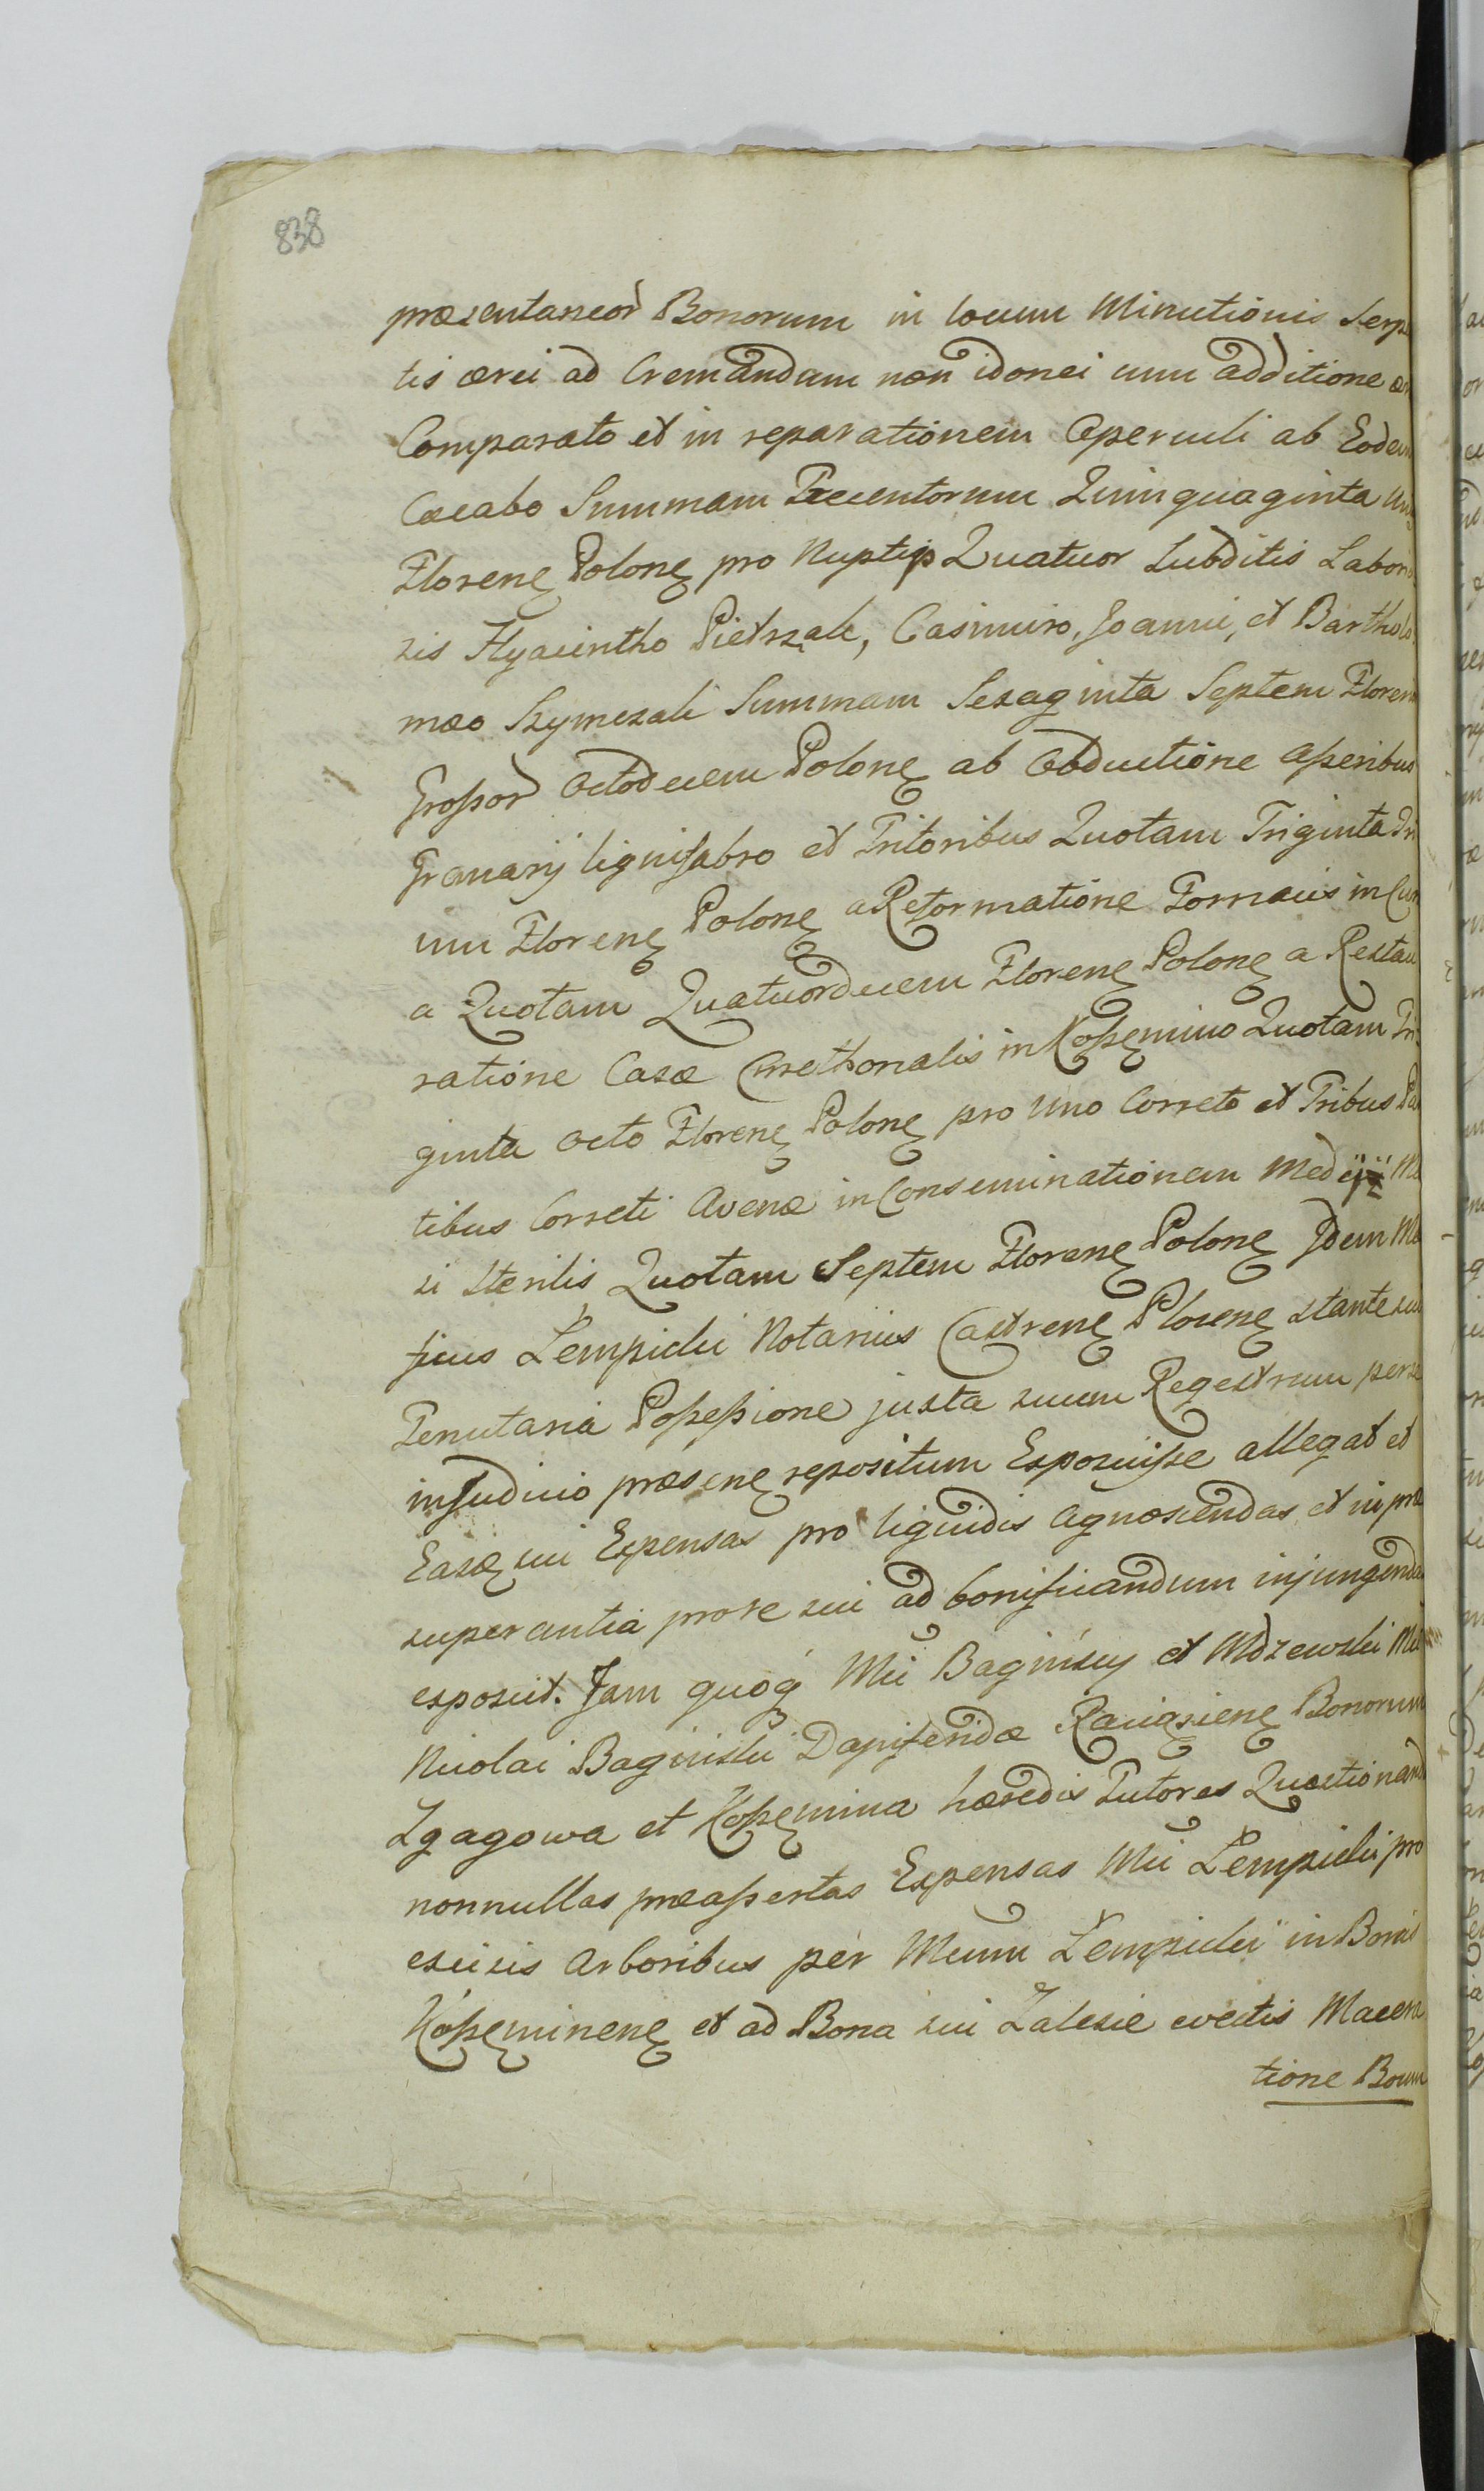 838
præsentaneor Bonorum in locum Minutionis Serpe
tis ærei ad Cremandam non idonei cum additione æ
Comparato et in reparationem Operculi ab Eodem
Cacabo Summam Trecentorum Quinquaginta
Floren Polon pro Nuptijs Quatuor Subditis Labori
sis Hyacintho Pietrzak, Casimiro, Joanni, et Bartholo
mæo Szymczak Summam Sexaginta Septem Floren
Grossor Octodecem Polon ab Obductione Asseribus
Granarij lignifabro et Tritoribus Quotam Triginta Tri
um Floren Polon a Reformatione Fornacis in Cur
a Quotam Quatuordecem Floren Polon a Restau
ratione Casæ Cmethonalis in Kossemino Quotam Tri
ginta Octo Floren Polon pro Uno Correto et Tribus Par
tibus Correti Avenæ in Conseminationem Medij Ma
si sterilis Quotam Septem Floren Polon Idem Ma
ficus Łempicki Notarius Castren Plocen stante sui
Tenutaria Possessione juxta suum Regestrum per se
in Judicio præsen repositum Exposuisse allegat et
Easq sui Expensas pro liquidis agnoscendas et in præ
superantia pro se sui ad bonificandum injungendas
exposcit. Jam quoq Mci Baginscy et Mdzewski Mci
Nicolai Baginski Dapiferidæ Raciązien Bonorum
Zgagowa et Kossemina hæredis Tutores Quæstionand
nonnullas præassertas Expensas Mci Łempicki pro
excisis Arboribus per Mcum Łempicki in Bonis
Kosseminen et ad Bona sui Zalesie evectis Macera
tione Boum